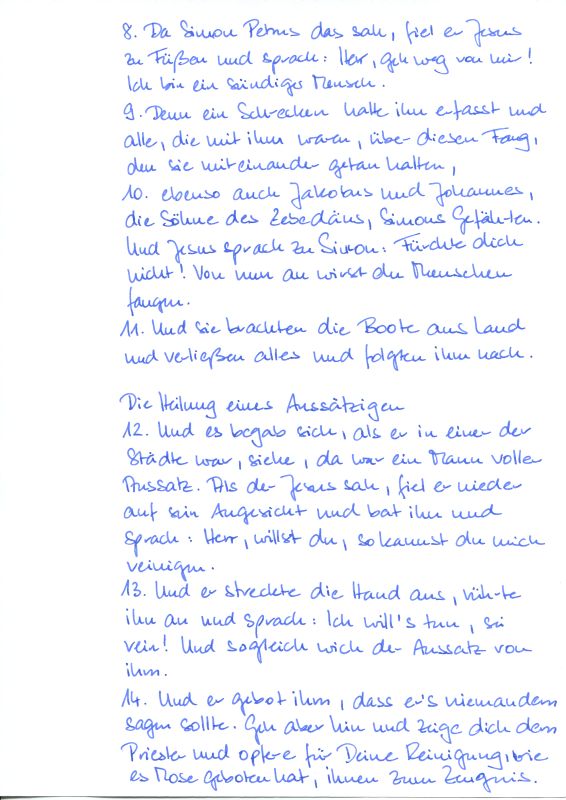 8. Da Simon Petrus das sah, fiel er Jesus
zu Füßen und sprach: Herr, geh weg von mir!
Ich bin ein sündiger Mensch.
9. Denn ein Schrecken hatte ihn erfasst und
alle, die mit ihm waren, über diesen Fang,
den sie miteinander getan hatten,
10. ebenso auch Jakobus und Johannes,
die Söhne des Zebedäus, Simons Gefährten.
Und Jesus sprach zu Simon: Fürchte dich
nicht! Von nun an wirst du Menschen
fangen.
11. Und sie brachten die Boote ans Land
und verließen alles und folgten ihm nach.
Die Heilung eines Aussätzigen
12. Und es begab sich, als er in einer der
Städte war, siehe, da war ein Mann voller
Aussatz. Als der Jesus sah, fiel er nieder
auf sein Angesicht und bat ihn und
sprach: Herr, willst du, so kannst du mich
reinigen.
13. Und er streckte die Hand aus, rührte
ihn an und sprach: Ich will's tun, sei
rein! Und sogleich wich der Aussatz von
ihm.
14. Und er gebot ihm, dass er's niemandem
sagen sollte. Geh aber hin und zeige dich dem
Priester und opfere für Deine Reinigung, wie
es Mose geboten hat, ihnen zum Zeugnis.